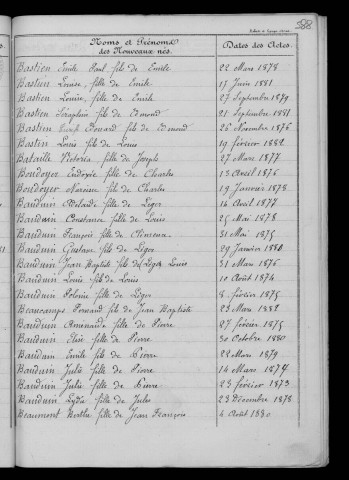 588
Noms et Prénoms
des Nouveaux nés.
Dates des Actes.
Bastien Emile Paul fils de Emile 22 Mars 1878
Bastien Louise fille de Emile 17 Juin 1881
Bastien Louise fille de Emile 27 Septembre 1879
Bastien Séraphin fils de Edmond 21 Septembre 1881
Bastien Edouard fils de Edmond 26 Novembre 1876
Bastien Louis fils de Louis 19 février 1882
Bataille Victoria fille de Joseph 27 Mars 1877
Boudoyer Eudoxie fille de Charles 15 Avril 1876
Boudoyer Narcisse fils de Charles 19 Janvier 1878
Bauduin Adelaïde fille de Léger 14 Avril 1877
Bauduin Constance fille de Louis 25 Mai 1878
Bauduin François fils de 31 Mai 1875
Bauduin Gustave fils de Léger 29 Janvier 1880
Bauduin Jean Baptiste fils de Louis 31 Mars 1876
Bauduin Louis fils de Louis 10 Août 1874
Bauduin fille de Léger 8 février 1875
Beaucamps Fernand fils de Jean Baptiste 23 Mars 1882
Bauduin fille de Pierre 27 février 1875
Bauduin fils de Pierre 30 Octobre 1880
Bauduin Emile fils de Pierre 22 Mars 1879
Bauduin Julie fille de Pierre 14 Mars 1874
Bauduin Julie fille de Pierre 23 février 1873
Bauduin Lydie fille de Jules 23 Décembre 1878
Beaumont Berthe fille de Jean François 4 Août 1880